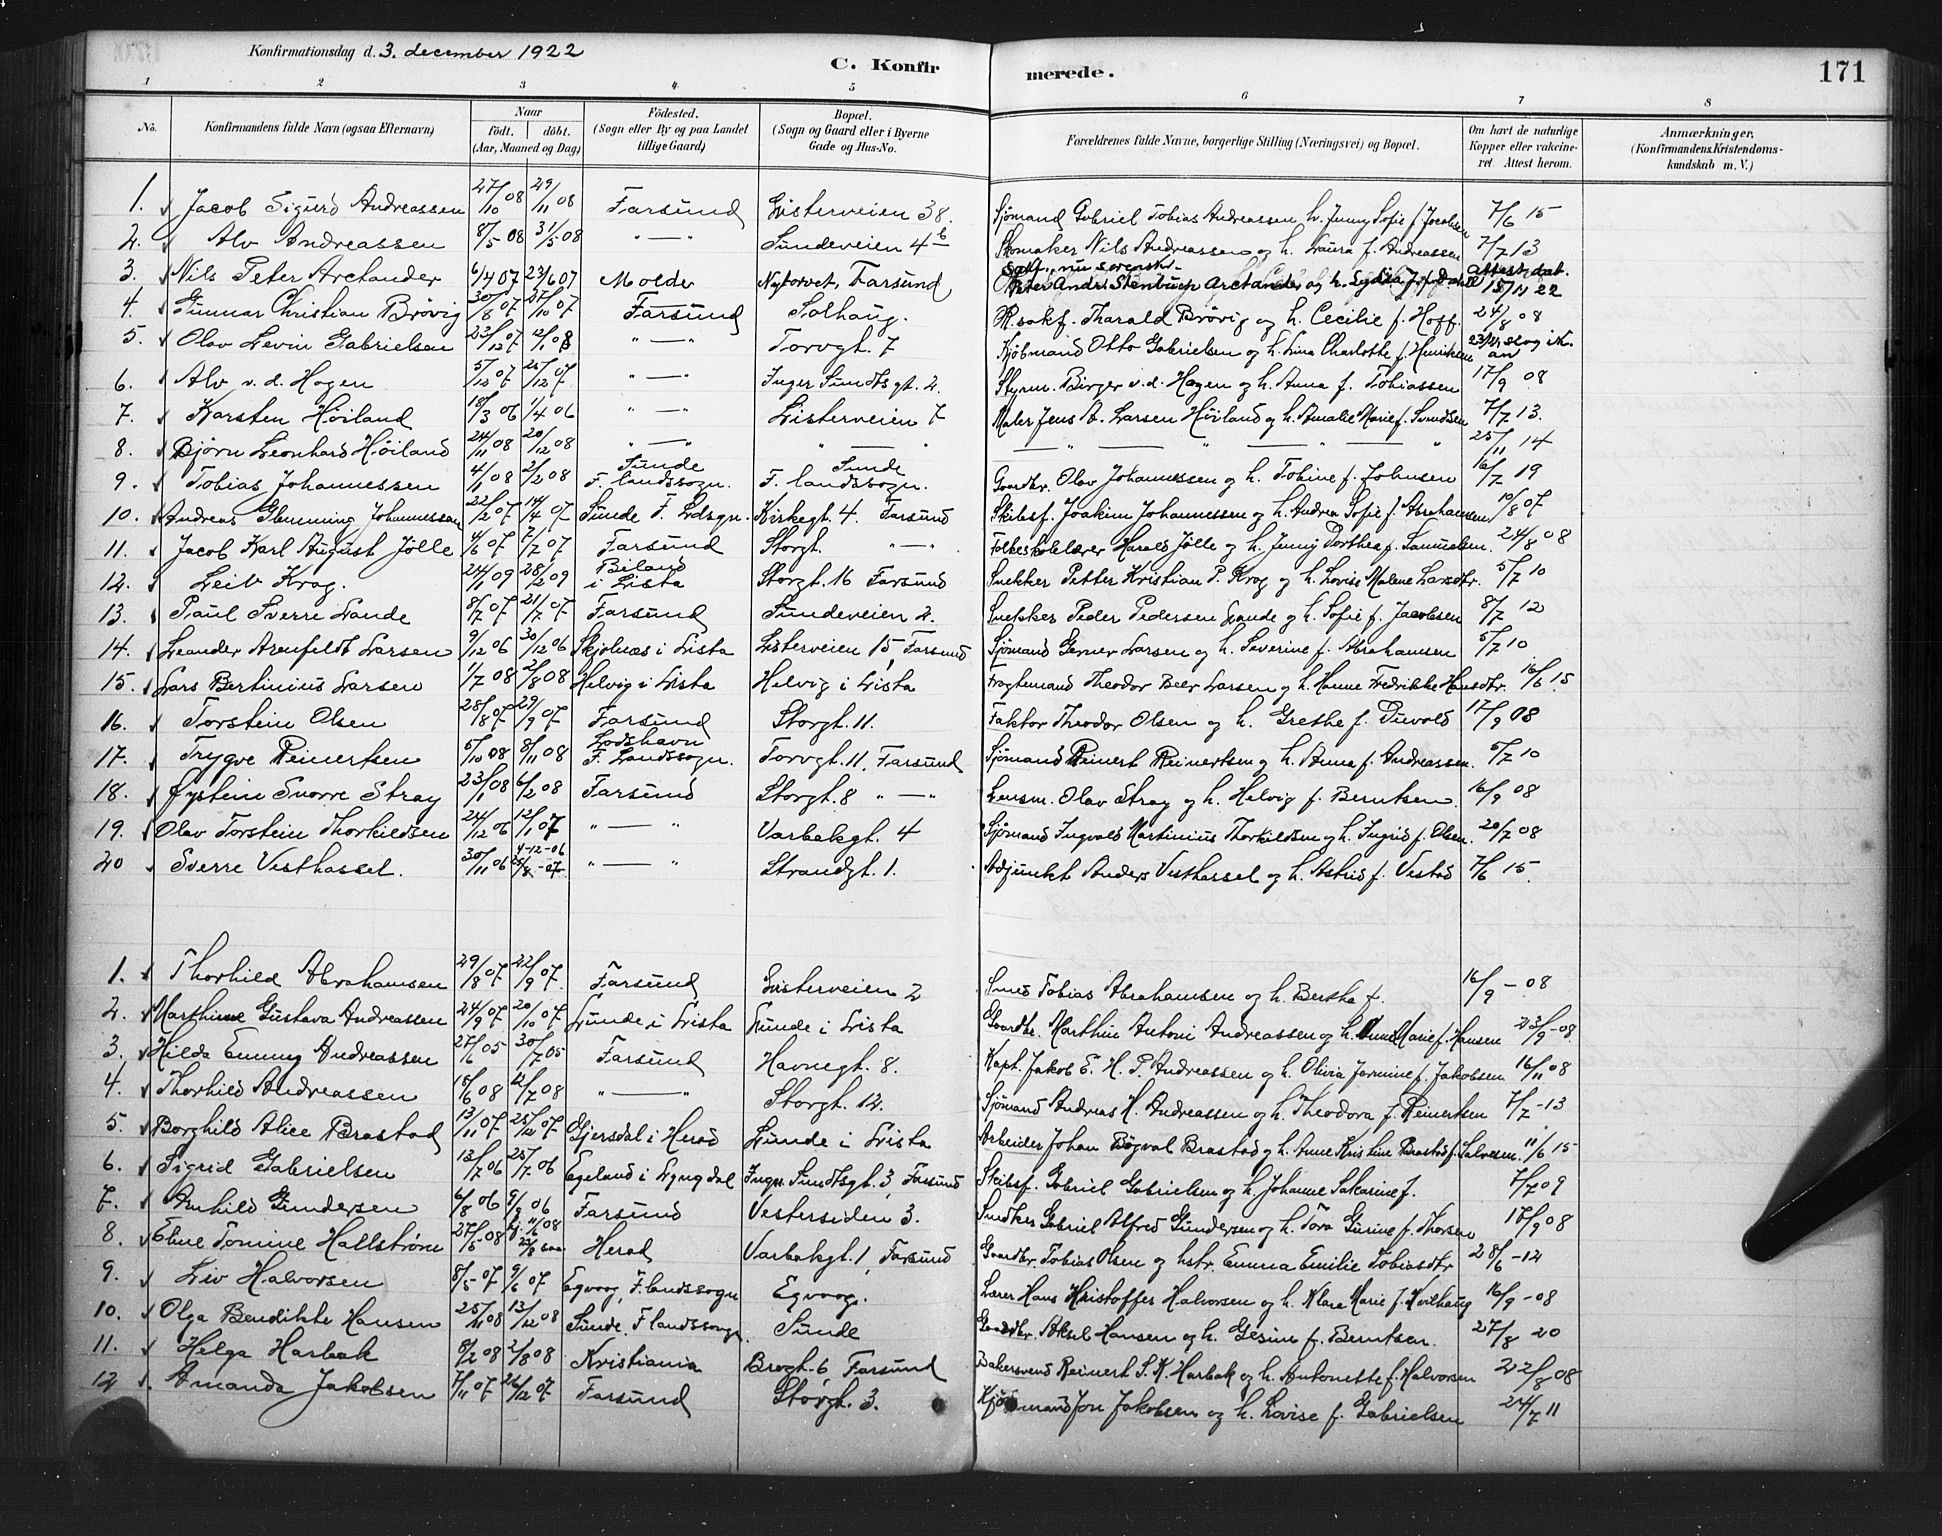 Konfirmationsdag d. 3. december 1922
C. Konfirmerede.
171
1 2 3 4 5 6 7 8
No. Konfirmandens fulde Navn (ogsaa Efternavn) Naar födt. döbt. (Aar, Maaned og Dag) Födested. (Sogn eller By og paa Landet tillige Gaard) Bopæl. (Sogn og Gaard eller i Byerne Gade og Hus-No. Forældrenes fulde Navne, borgerlige Stilling (Næringsvei) og Bopæl. Om havt de naturlige Kopper eller vakcineret. Attest herom. Anmærkninger. (Konfirmandens Kristendomskundskab m. V.)
1. Jacob Sigurd Andreassen 27/10 08 29/11 08 Farsund Listerveien 38. Sjømand Gabriel Tobias Andreassen h. Jenny Sofie f. Jacobsen 7/6 15
2. Alv Andreassen 8/5 08 31/5 08 " — " Sundeveien 4 b Skomaker Nils Andreassen og h. Laura f. Andreassen 7/7 13
3. Nils Peter Arctander 6/4 07 23/6 07 Molde Nytorvet, Farsund Peter Andr. Stenbuch Arctander og h. Lydia f. Dahll attest dat. 15/11 22
4. Gunnar Christian Brøvig 30/8 07 27/10 07 Farsund Solhaug. O.R.sakf. Tharald Brøvig og h. Cecilie f. Hoff. 24/8 08
5. Olav Levin Gabrielsen 23/12 07 12/1 08 " — " Torvgt. 7 Kjøbmand Otto Gabrielsen og h. Lina Charlotte f. Henriksen slog ik. an
6. Alv v. d. Hagen 5/12 07 25/12 07 " — " Inger Sundtsgt. 2. Styrm. Birger v. d. Hagen og h. Anna f. Tobiassen 17/9 08
7. Karsten Høiland 18/3 06 1/4 06 " — " Listerveien 7 Maler Jens A. Larsen Høiland og h. Amalie Marie f. Svendsen 7/7 13.
8. Bjørn Leonhard Høiland 24/11 08 20/12 08 " — " " — " " — " — " — " 25/11 14
9. Tobias Johannessen 4/1 08 2/2 08 Sunde F. landssogn. Sunde F. landssogn. Gaardbr. Olav Johannessen og h. Tobine f. Johnsen 16/7 19
10. Andreas Flemming Johannessen 22/2 07 14/4 07 Sunde F. Ldsgn. Kirkegt. 4. Farsund Skibsf. Joakim Johannessen og h. Andrea Sofie f. Abrahamsen 10/8 07
11. Jacob Karl August Jølle 4/6 07 7/7 07 Farsund Storgt. " — " Folkeskolelærer Harald Jølle og h. Jenny Dorthea f. Samuelsen. 24/8 08
12. Leif Krag. 24/1 09 28/2 09 Biland i Lista Storgt. 16 Farsund Snekker Petter Kristian P. Krag og h. Lovise Malene Larsdtr. 5/7 10
13. Paul Sverre Lande 8/7 07 21/7 07 Farsund Sundeveien 2. Snekker Peder Pedersen Lande og h. Sofie f. Jacobsen 8/7 12
14. Leander Arenfeldt Larsen 9/12 06 30/12 06 Skjolnæs i Lista Listerveien 15, Farsund Sjømand Gerner Larsen og h. Severine f. Abrahamsen 5/7 10
15. Lars Bertinius Larsen 1/7 08 2/8 08 Helvig i Lista Helvig i Lista Fragtemand Theodor Beer Larsen og h. Hanne Fredrikke Hansdtr. 16/6 15
16. Torstein Olsen 28/8 07 29/9 07 Farsund Storgt. 11. Faktor Theodor Olsen og h. Grethe f. Duvold 17/9 08
17. Trygve Reinertsen 5/10 08 8/11 08 Lodshavn F. Landssogn. Torvgt. 11, Farsund Sjømand Reinert Reinertsen og h. Anna f. Andreassen. 5/7 10
18. Øystein Snorre Stray 23/1 08 6/2 08 Farsund Storgt. 8 " — " Lensm. Olav Stray og h. Helvig f. Berntsen. 16/9 08
19. Olav Torstein Thorkildsen 24/12 06 12/1 07 " — " Varbakgt. 4 Sjømand Ingvald Martinius Thorkildsen og h. Ingrid f. Olsen. 20/7 08
20 Sverre Vesthassel. 30/11 06 4-12-06 " — " Strandgt. 1. Adjunkt Anders Vesthassel og h. Astrid f. Vestad 7/6 15.
1. Thorhild Abrahamsen 29/8 07 22/9 07 Farsund Listerveien 2 Smed Tobias Abrahamsen og h. Bertha f. 16/9 – 08
2. Marthine Gustava Andreassen 24/9 07 20/10 07 Lunde i Lista Lunde i Lista Gaardbr. Marthin Antoni Andreassen og h. Anne Marie f. Hansen 23/9 – 08.
3. Hilda Emmy Andreassen 27/6 05 30/7 05 Farsund Havnegt. 8. Kapt. Jakob E. H. P. Andreassen og h. Olivia Jermine f. Jakobsen 16/11 08
4. Thorhild Andreassen 18/6 08 12/7 08 " — " Storgt. 12. Sjømand Andreas H. Andreassen og h. Theodora f. Reinertsen 7/7 – 13
5. Borghild Alice Brastad 13/11 07 25/12 07 Gjersdal i Herad Lunde i Lista Arbeider Johan Bøgval Brastad og h. Anne Kristine Brastad f. Salvesen. 11/6 15
6. Sigrid Gabrielsen 13/7 06 25/7 06 Egeland i Lyngdal Inger Sundtsgt. 3, Farsund Skibsf. Gabriel Gabrielsen og h. Johanne Sakarine f. 7/7 09
7. Anhild Gundersen 6/8 06 9/9 06 Farsund Vestersiden 3. Snekker Gabriel Alfred Gundersen og h. Tora Gurine f. Thorsen 17/9 08
8. Else Tomine Hallstrøm 27/5 08 Herad Varbakgt. 1, Farsund Gaardbr. Tobias Olsen og hstr. Emma Emilie Tobiasdtr 28/6 – 12
9. Liv Halvorsen 8/5 07 9/6 07 Egvoog, F. landssogn Egvoog. Lærer Hans Kristoffer Halvorsen og h. Klara Marie f. Kvilhaug 16/9 – 08
10. Olga Bendikte Hansen 25/11 08 13/12 08 Sunde, F. landssogn Sunde Gaardbr. Aksel Hansen og h. Gesine f. Berntsen. 27/8 20
11. Helga Harbak 8/2 08 2/8 08 Kristiania Brogt. 6, Farsund Bakersvend Reinert S. K. Harbak og h. Antonette f. Halvorsen 22/8 08
12 Amanda Jakobsen 7/11 07 26/12 07 Farsund Storgt. 3. Kjøbmand Jon Jakobsen og h. Lovise f. Gabrielsen 24/7 11